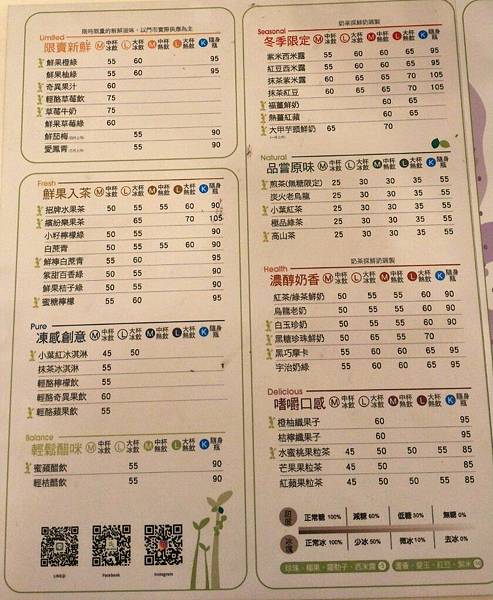 限時限量的新鮮滋味，以門市實際供應為主
Limited
限賣新鮮 M中杯冰飲 L大杯冰飲 M中杯熱飲 L大杯熱飲 K隨身瓶
鮮果橙綠 55 60 95
鮮果柚綠 55 60 95
奇異果汁 60
輕酪草莓飲 75
草莓牛奶 75
鮮果草莓綠 60
鮮茄梅 55 90
愛鳳青 55 90
Fresh
鮮果入茶 M中杯冰飲 L大杯冰飲 M中杯熱飲 L大杯熱飲 K隨身瓶
招牌水果茶 50 55 55 60 90
繽紛樂果茶 65 70 105
小籽檸檬綠 50 55 90
白蔗青 50 55 55 60 90
鮮檸白蔗青 55 60 95
紫甜百香綠 50 55 90
鮮果桔子綠 50 55 90
蜜糖檸檬 55 60 95
Pure
凍感創意 M中杯冰飲 L大杯冰飲 M中杯熱飲 L大杯熱飲 K隨身瓶
小葉紅冰淇淋 45 50
抹茶冰淇淋 55
輕酪檸檬飲 55
輕酪奇異果飲 60
輕酪蘋果飲 55
Balance
輕鬆醋咪 M中杯冰飲 L大杯冰飲 M中杯熱飲 L大杯熱飲 K隨身瓶
蜜蘋醋飲 55 90
輕桔醋飲 55 90
LINE@ Facebook Instagram
奶茶採鮮奶調製
Seasonal
冬季限定 M中杯冰飲 L大杯冰飲 M中杯熱飲 L大杯熱飲 K隨身瓶
紫米西米露 55 60 60 65 95
紅豆西米露 55 60 60 65 95
抹茶紫米露 60 65 65 70 105
抹茶紅豆 60 65 65 70 105
福薑鮮奶 60 65
熱薑紅蘋 60 65
大甲芋頭鮮奶 65 70
Natural
品嘗原味 M中杯冰飲 L大杯冰飲 M中杯熱飲 L大杯熱飲 K隨身瓶
煎茶(無糖限定) 25 30 30 35 55
炭火老烏龍 25 30 30 35 55
小葉紅茶 25 30 30 35 55
極品綠茶 25 30 30 35 55
高山茶 25 30 30 35 55
奶茶採鮮奶調製
Health
濃醇奶香 M中杯冰飲 L大杯冰飲 M中杯熱飲 L大杯熱飲 K隨身瓶
紅茶/綠茶鮮奶 50 55 55 60 90
烏龍老奶 50 55 55 60 90
白玉珍奶 50 55 55 60 90
黑糖珍珠鮮奶 50 65 55 70
黑巧摩卡 55 60 60 65 95
宇治奶綠 55 60 60 65 95
Delicious
嗜嚼口感 M中杯冰飲 L大杯冰飲 M中杯熱飲 L大杯熱飲 K隨身瓶
橙柚纖果子 60 95
桔檸纖果子 60 95
水蜜桃果粒茶 45 50 50 55 85
芒果果粒茶 45 50 85
紅蘋果粒茶 45 50 50 55 85
甜度 正常糖 100% 減糖 60% 低糖 30% 無糖 0%
冰塊 正常冰 100% 少冰 50% 微冰 10% 去冰 0%
珍珠、椰果、蘿勒子、西米露 5 蘆薈、愛玉、紅豆、紫米 10